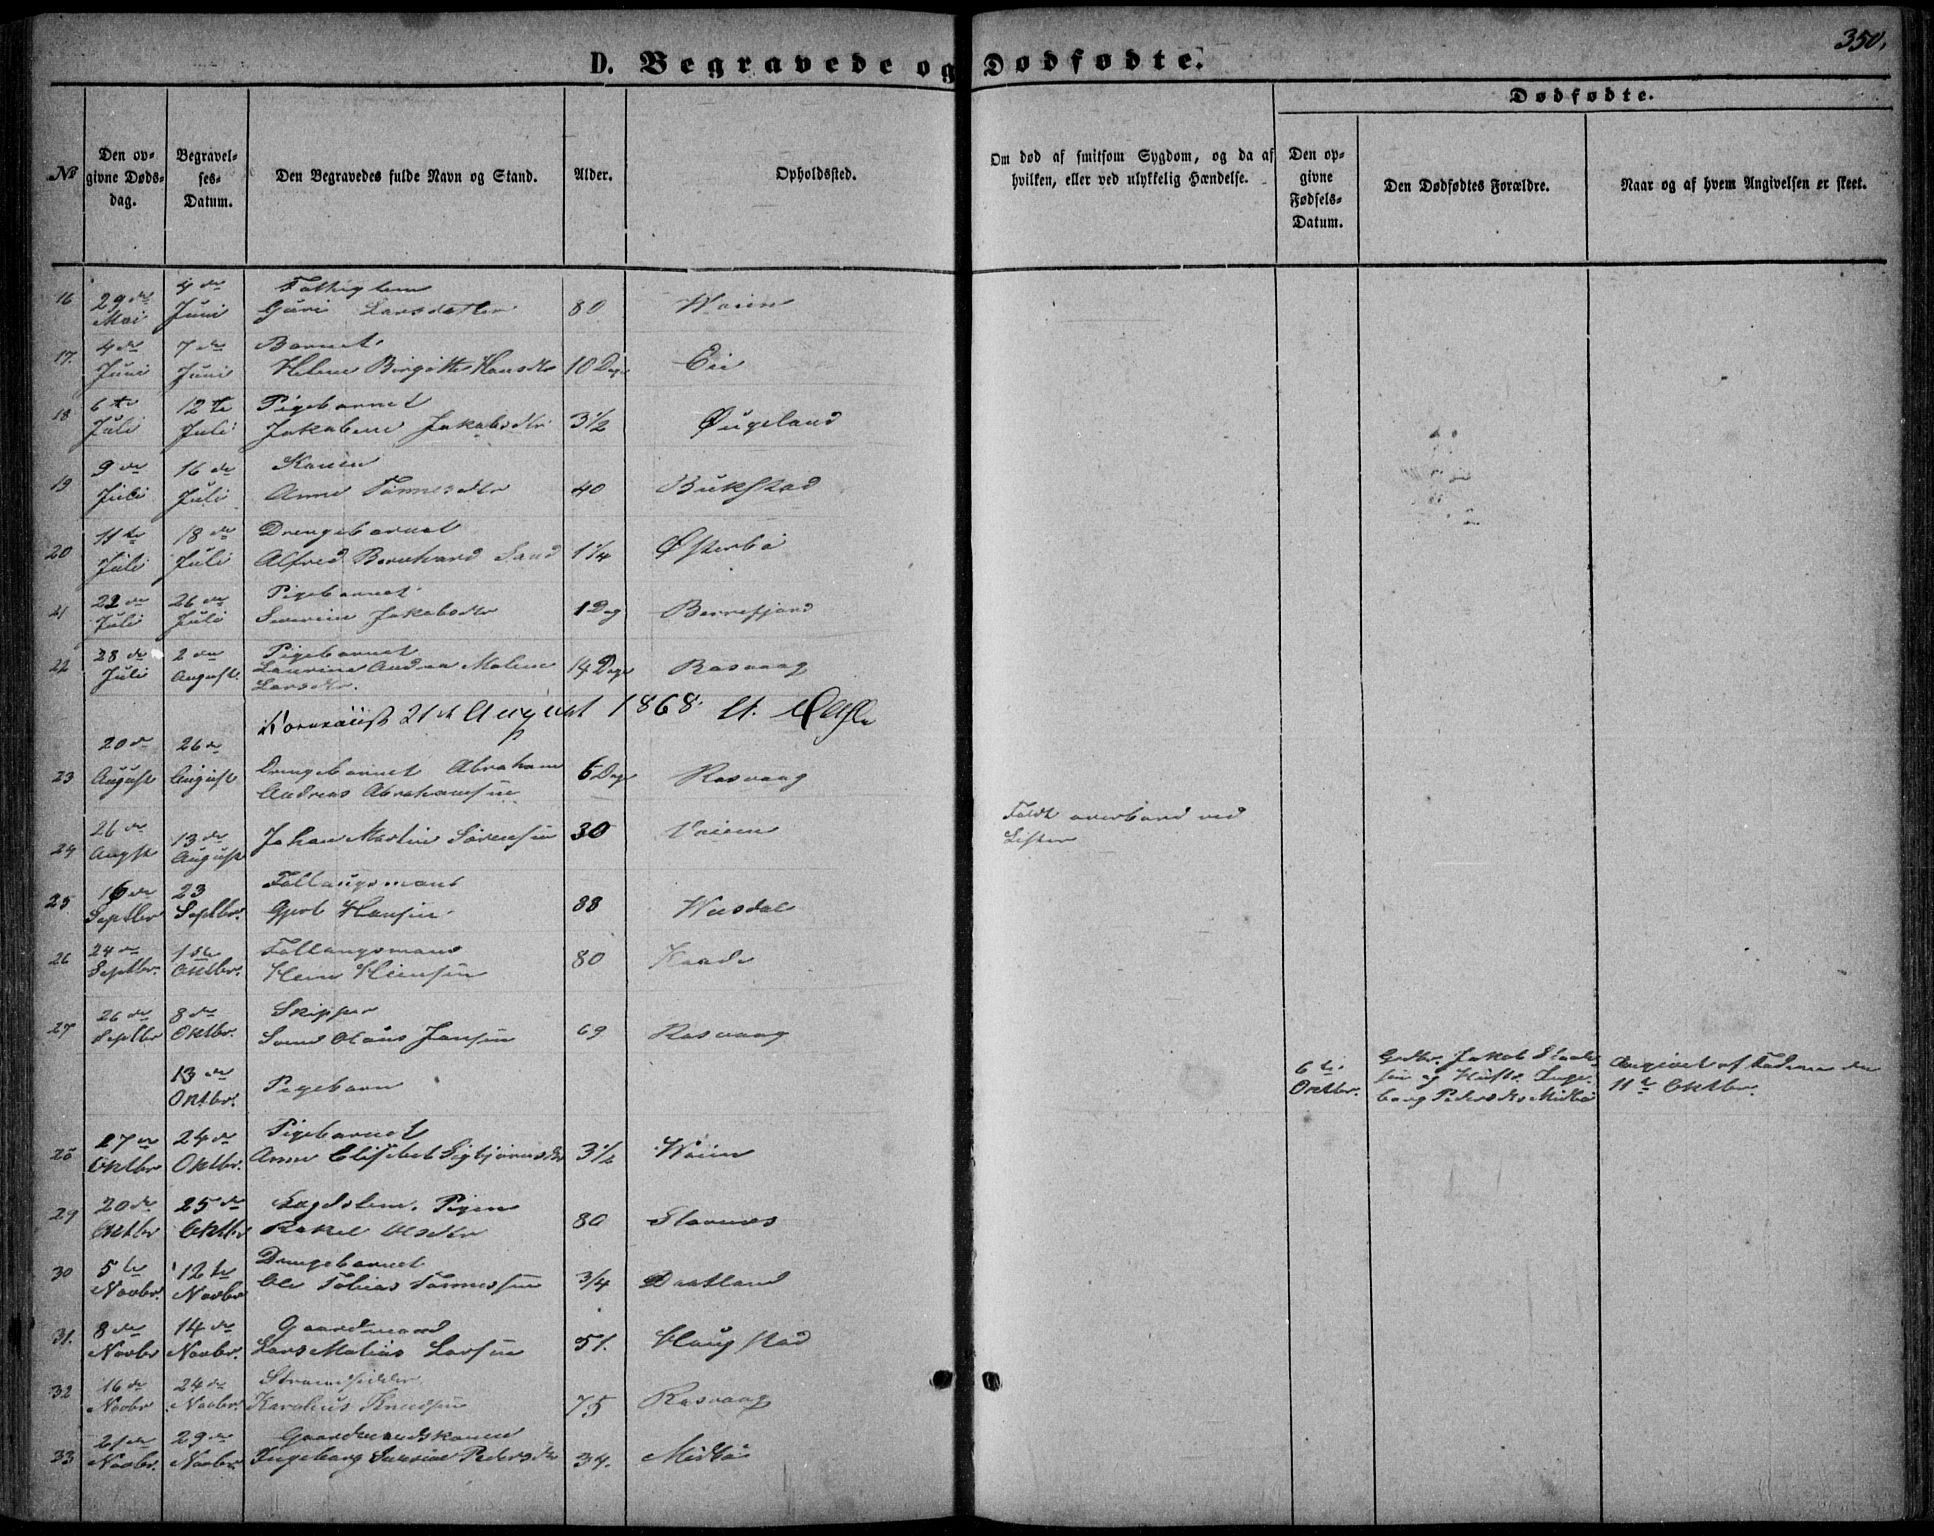 350.
D. Begravede og Dødfødte.
Dødfødte.
No
Den opgivne Dødsdag.
Begravelses-Datum.
Den Begravedes fulde Navn og Stand.
Alder.
Opholdssted.
Om død af smitsom Sygdom, og da af hvilken, eller ved ulykkelig Hændelse.
Den opgivne Fødsels-Datum.
Den Dødfødtes Forældre.
Naar og af hvem Angivelsen er skeet.
16 29de Mai 4de Juni Fattiglem Guri Larsdatter 80 Waien
17. 4de Juni 7de Juni Barnet Helene Birgitte Hansdtr 10 Dage Eie
18 6te Juli 12te Juli Pigebarnet Jakobine Jakobsdtr 3 1/2 Øugeland
19 9de Juli 16de Juli Konen Anne Tønnesdtr 40 Bukstad
20 11te Juli 18de Juli Drengebarnet Alfred Bernhard Sand 1 1/4 Østerbø
21 22de Juli 26de Juli Pigebarnet Severine Jakobsdtr 1 Dag Berrefjord
22 28de Juli 2den August Pigebarnet Laurine Andrea Malene Larsdtr. 14 Dage Rasvaag
21de August 1868.
23 20de August 26de August Drengebarnet Abraham Andreas Abrahamsen 6 Dage Rasvaag
24 26de Augst 13de August Johan Martin Sørensen 30 Vaien Faldt overbord ved Lister
25 16de Septbr 23 Septbr. Follaugsmand Gjert Hansen 88 Wusdal
26 24de Septbr. 1ste Oktbr. Follaugsmand 80 Kaade
27 26de Septbr 8de Oktbr. Skipper Claus Jansen 69 Rasvaag
13de Oktbr. Pigebarn 6te Oktbr. Grdbr. Jakob og Hustr. Ingeborg Pedersdtr Midbø Angivet af Faderen den 11te Oktbr.
28 17de Oktbr 24de Oktbr. Pigebarnet Anne Elisebet Sigbjørnsdtr 3 1/2 Waien
29 20de Oktbr 25de Oktbr Lægdslem, Pigen Rakel Olsdtr 80 Stornes
30 5te Novbr. 12te Novbr Drengebarnet Ole Tobias Tønnessen 3/4 Dratland
31. 8de Novbr 14de Novbr. Gaardmand Lars Matias Larsen 51. Haugstad
32 16de Novbr 24de Novbr. Strandsidder Karolius Knudsen 75 Rasvaag
33 21de Novbr. 29de Novbr. Gaardmandskonen Ingeborg Pedersdtr 34. Midbø